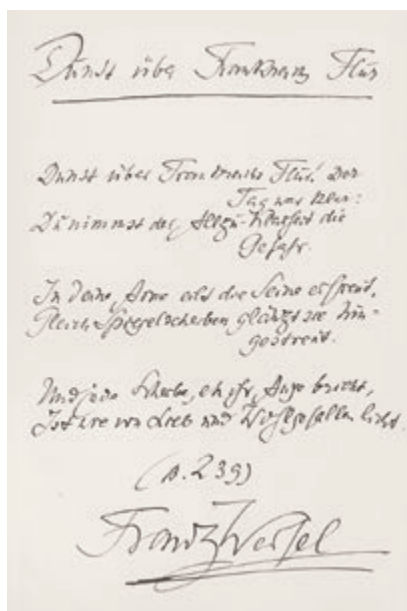 Dunst über Frankreichs Flur
Dunst über Frankreichs Flur! Der
Tag war klar:
Du nimmst der Allzu-Klarheit die
Gefahr.
In Deine Arme eilt die Seine erfreut,
Gleich Spiegelscheiben glänzt sie hin-
gestreut.
Und jede Scheibe, eh ihr Auge bricht,
Ist wie von Lieb und Wohlgefallen licht.
(S. 239)
Franz Werfel